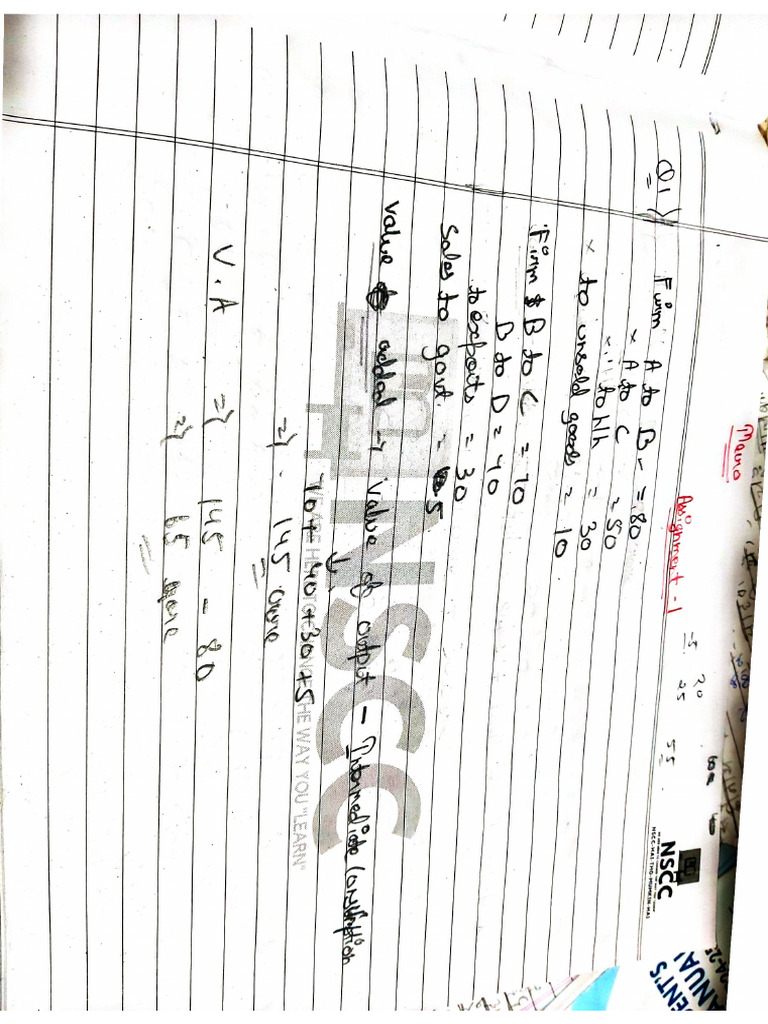 Macro
Assignment - 1
NSCC
NSCC-HAI-THO-MUMKIN-HAI
Q1) Firm A to B - = 80
x A to C = 50
x " to hh = 30
x to unsold goods = 10
Firm B to C = 70
B to D = 40
to exports = 30
Sales to govt. = 5
value added → value of output - Intermediate Consumption
↓
70 + 40 + 30 + 5
⇒ 145 crore
V.A ⇒ 145 - 80
⇒ 65 crore
NSCC
WAY YOU "LEARN"